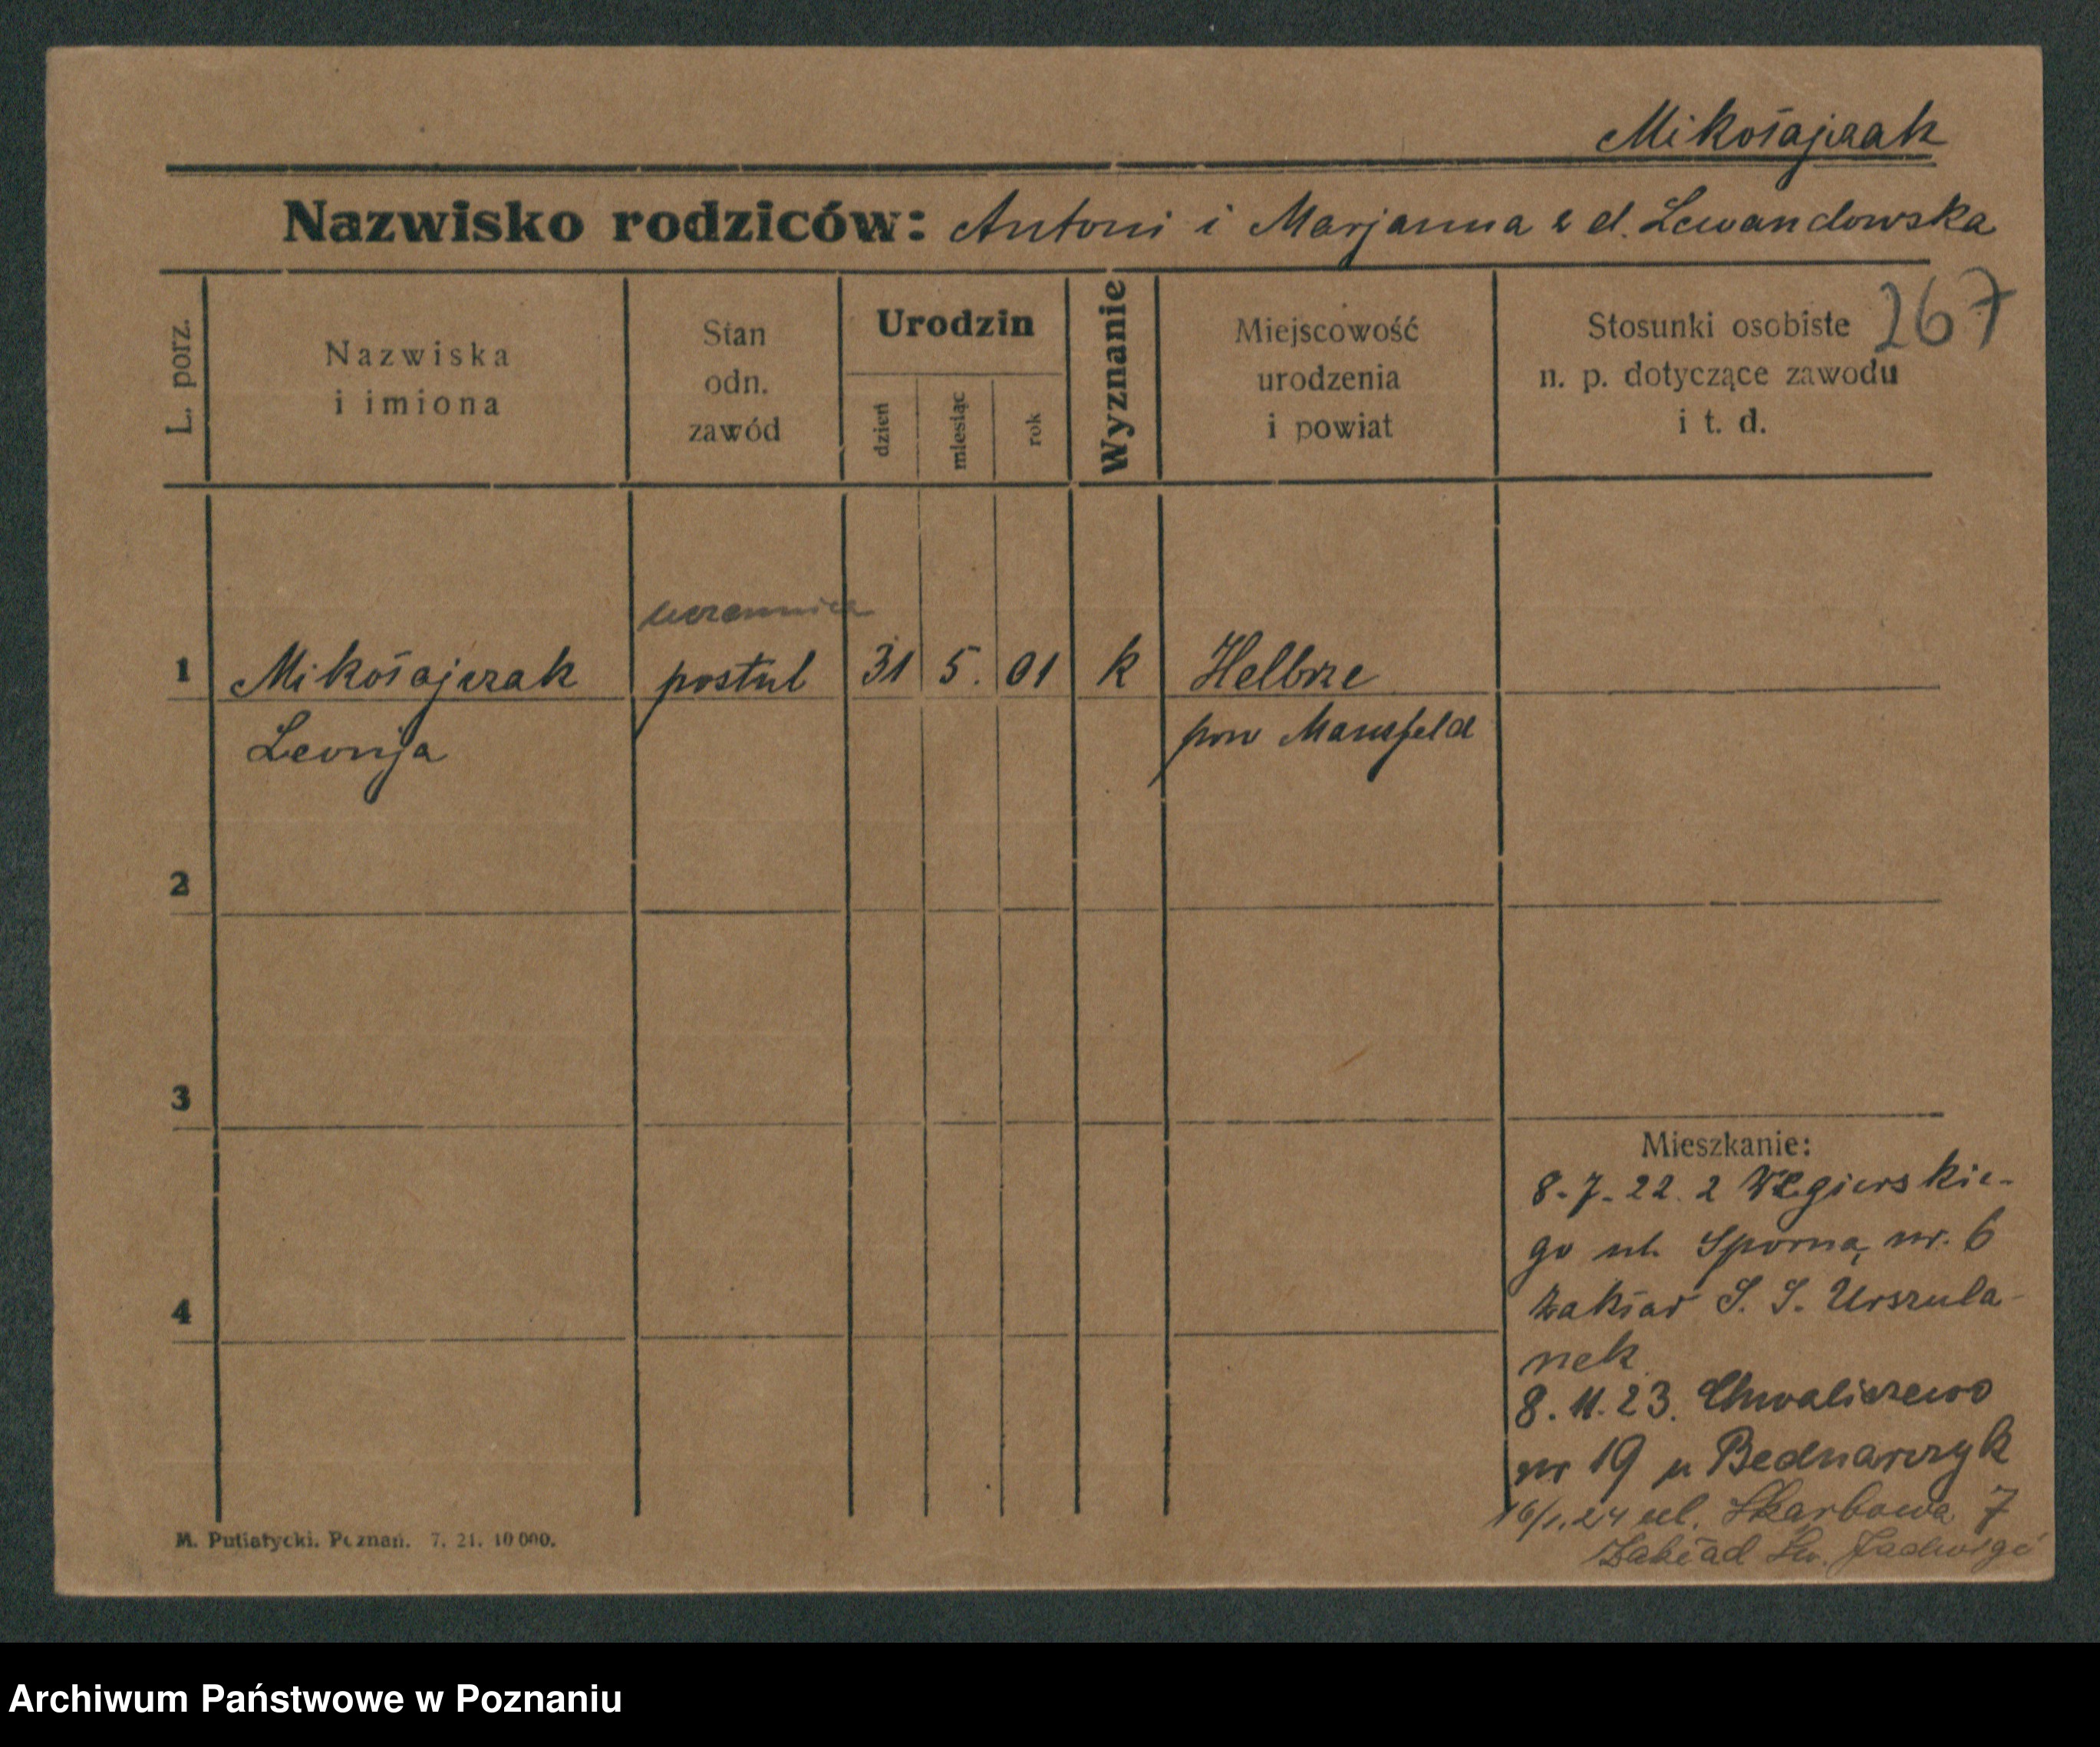 Mikołajczak
Nazwisko rodziców: Antoni i Marjanna z d. Lewandowska
267
L. porz.
Nazwiska
i imiona
Stan
odn.
zawód
Urodzin
dzień
miesiąc
rok
Wyznanie
Miejscowość
urodzenia
i powiat
Stosunki osobiste
n. p. dotyczące zawodu
i t. d.
uczennica
1 Mikołajczak postul 31 5. 01 k Helbrze
Leonja pow Mansfeld
2
3
4
Mieszkanie:
8-7-22. z Węgierskie-
go ul. Sporna, nr. 6
Zakład S. S. Urszula-
nek
8. 11. 23. Chwaliszewo
nr 19 u Bednarczyk
16/1.24 ul. Skarbowa 7
Zakład Św. Jadwigi
M. Putiatycki. Poznań. 7. 21. 10 000.
Archiwum Państwowe w Poznaniu